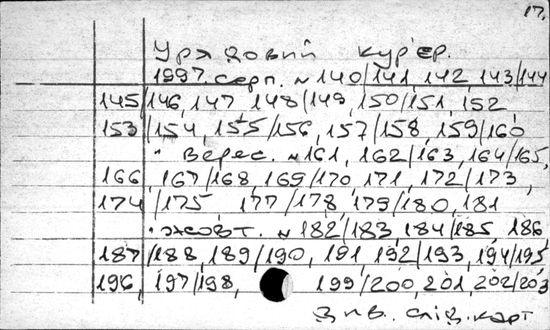 17.
Урядовий кур'єр.
1997. серп. N 140/141, 142, 143/144
145/146, 147, 148/149, 150/151, 152
153/154, 155/156, 157/158, 159/160
" Верес. N 161, 162/163, 164/165,
166, 167/168, 169/170, 171, 172/173,
174/175 177/178, 179/180, 181
" жовт. N 182/183, 184/185, 186
187/188, 189/190, 191, 192/193, 194/195
196, 197/198, 199/200, 201, 202/203
Див. слід. карт